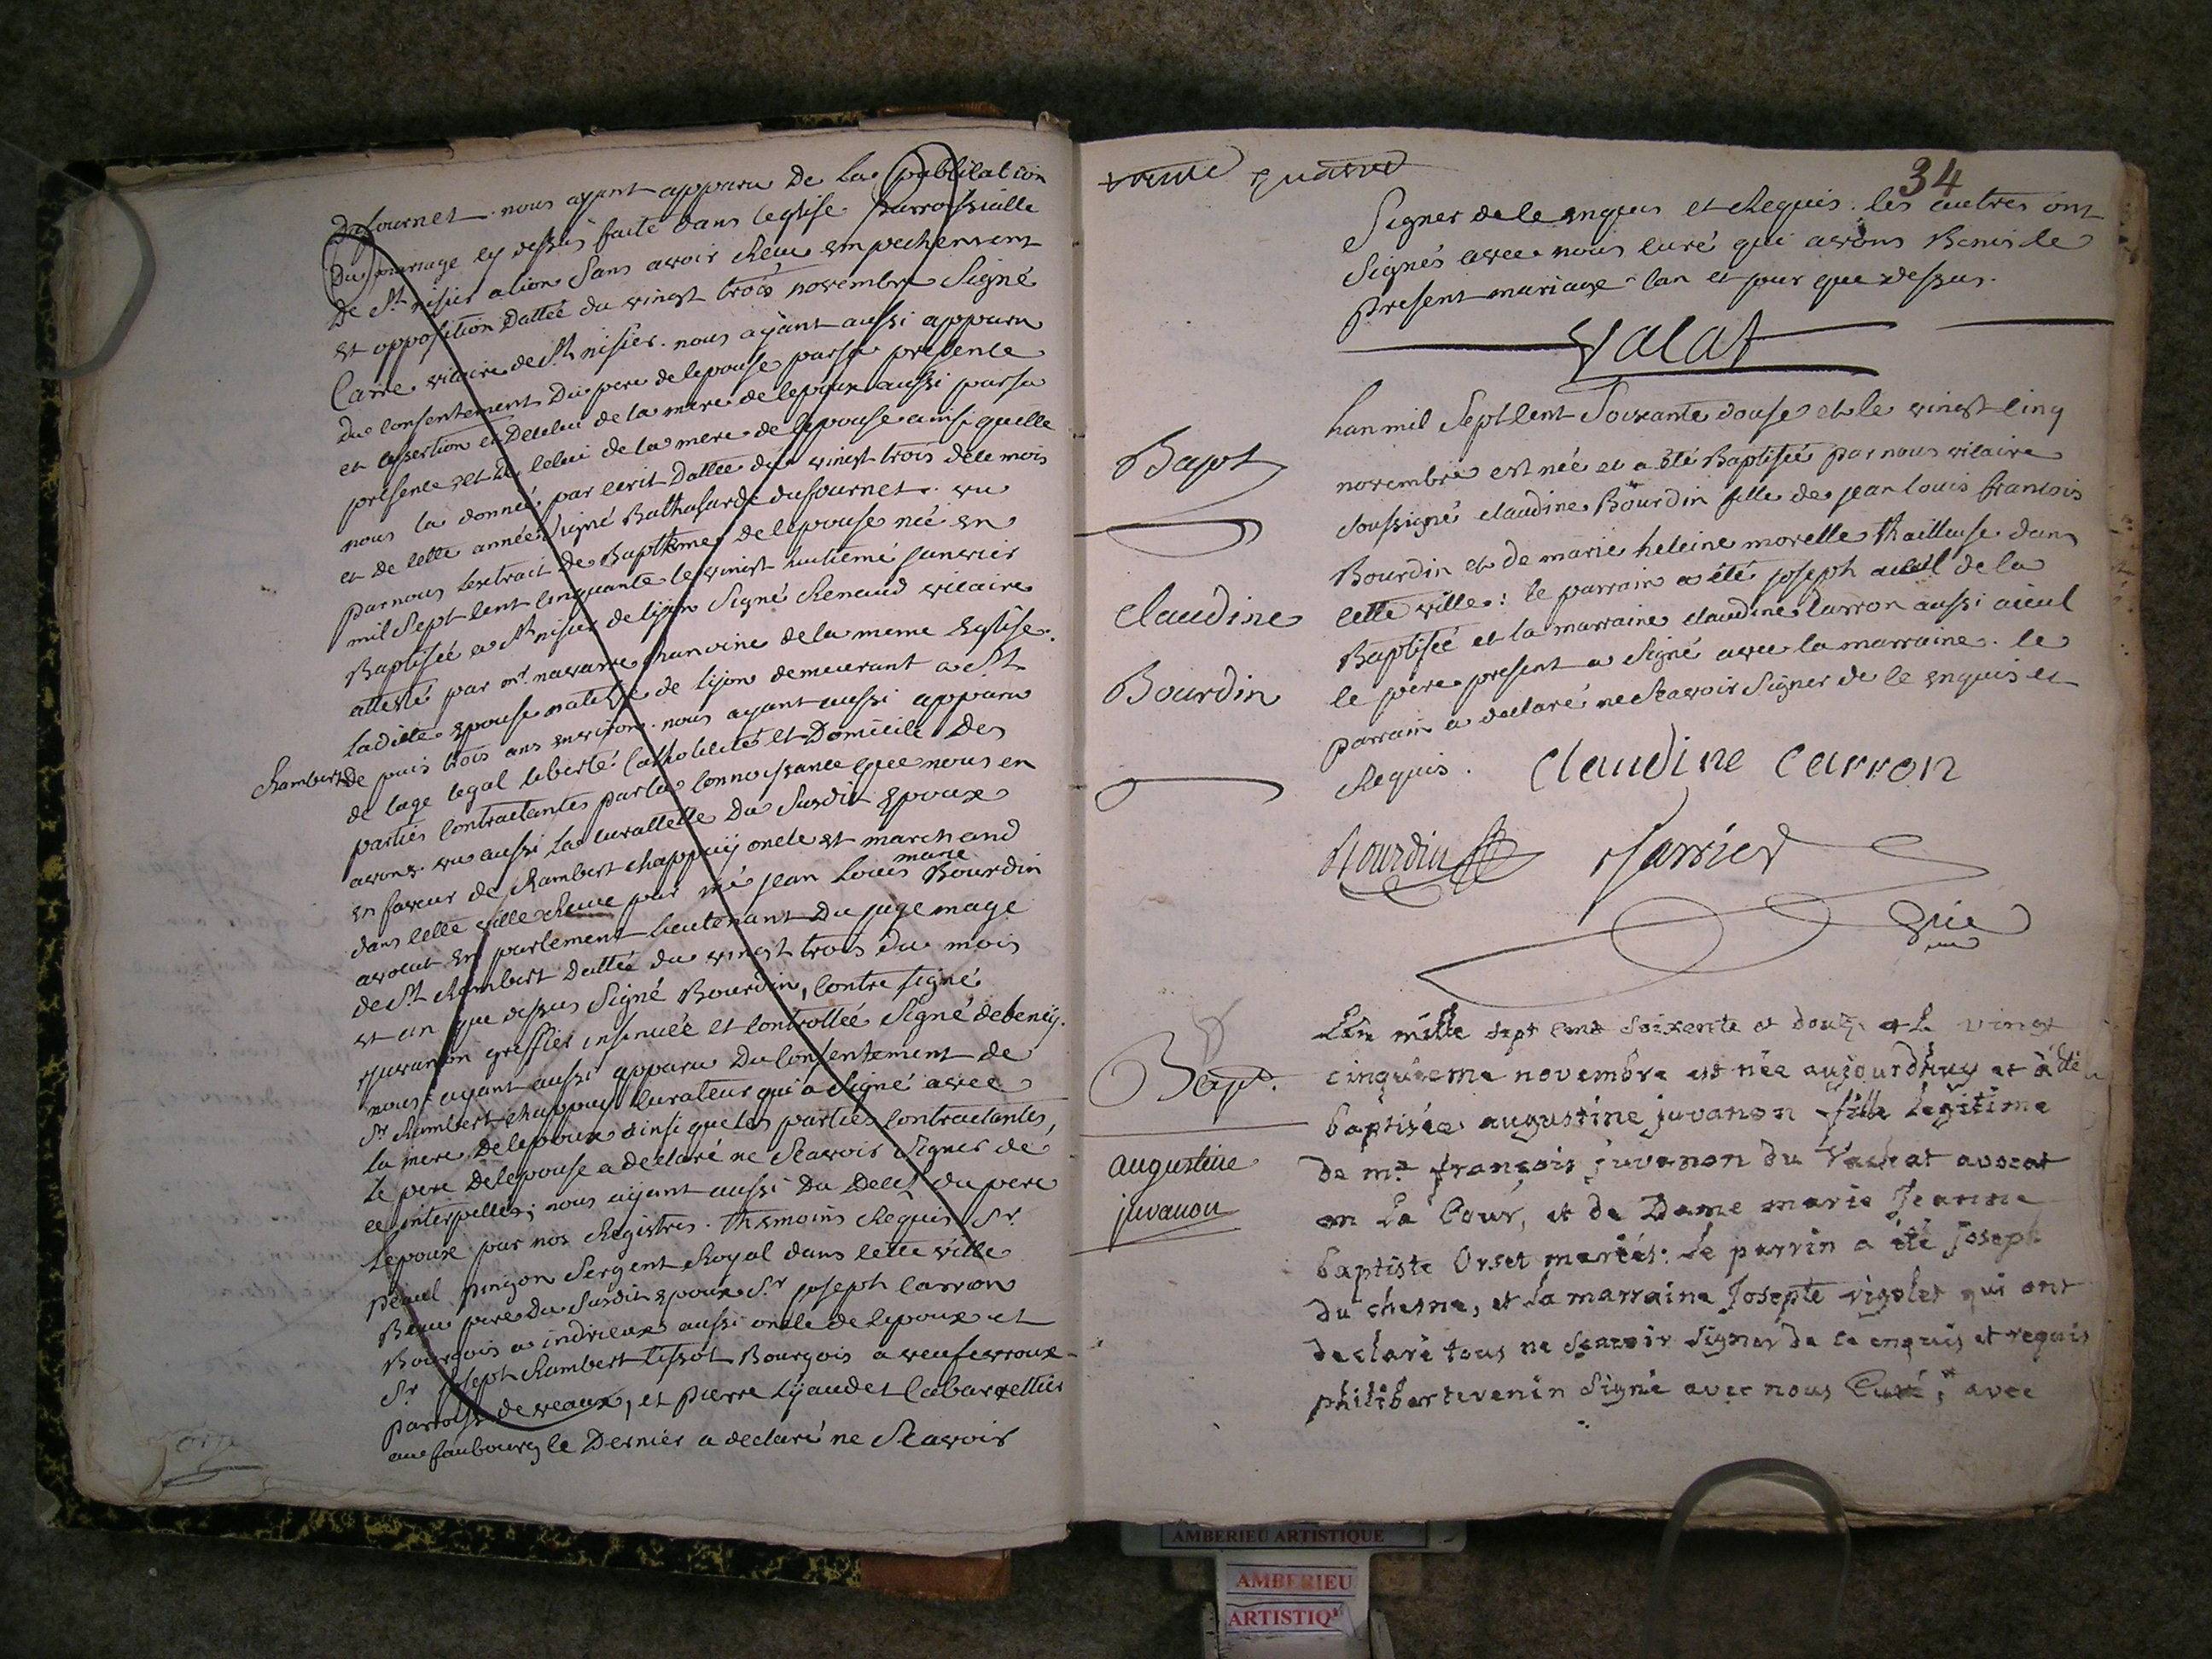 Dufournet. nous ayant apparu De La publication
Du mariage cy dessus faite dans leglise parroissialle
De St nisier a lion Sans avoir Receu empechement
et opposition Dattée du vingt trois novembre Signé
Carre vicaire de St nisier. nous ayant aussi apparu
du Consentement Du pere de lepouse par sa presence
et assertion et De celui de la mere de lepoux aussi par sa
présence et de celui de la mere de lepouse ainsi quelle
nous la donné par ecrit Dattée du vingt trois de ce mois
et De cette année Signé Balthasarde dufournet. vu
par nous lextrait de Baptême de lepouse née en
mil Sept Cent Cinquante le vingt huitiémé Janvier
Baptisée a St nisier de lyon Signé Renaud vicaire
attesté par mr. navarre Chanoine de la meme Eglise.
laditte Epouse native de lyon demeurant a St
Rambert De puis trois ans environ. nous ayant aussi apparu
de lage legal liberté Catholicité et Domicile Des
parties Contractantes par la Connoissance que nous en
avons. vu aussi la Curattelle Du Susdit Epoux
en faveur de Rambert Chappuy oncle et marchand
dans cette ville Receue par mé jean Louis marie Bourdin
avocat En parlement Lieutenant Du juge mage
de St Rambert Dattée du vingt trois du mois
et an que dessus Signé Bourdin, Contre signé
Juvanon greffier insinuée et Controllée Signé debeney.
nous ayant aussi apparu Du Consentement de
Sr Rambert Chappuy Curateur qui a Signé avec
la mere De lepoux ainsi que les parties Contractantes,
Le pere De lepouse a declaré ne Scavoir Signer de
ce interpellés; nous ayant aussi Du Deces du pere
Lepoux par nos Registres. thémoins Requis Sr.
paul pingon Sergent Royal dans cette ville
Beau pere du Susdit Epoux Sr joseph Carron
Bourgois a indrieux aussi oncle de lepoux et
Sr joseph Rambert tissot Bourgois a
parroisse de veaux, et pierre Lyaudet Cabarettier
au faubourg le Dernier a declaré ne Scavoir
trente quatre
34
Signer de ce enquis et Requis. les autres ont
Signés avec nous Curé qui avons Benis le
present mariage lan et jour que dessus.
Valat
Bapt
Claudine
Bourdin
Lan mil Sept Cent Soixante douse et le vingt Cinq
novembre est née et a été Baptisée par nous vicaire
soussigné Claudine Bourdin fille de jean louis francois
Bourdin et de marie heleine morelle thailleuse dans
cette ville: le parrain a été joseph aieul de la
Baptisée et la marraine Claudine Carron aussi aieul
le pere present a Signé avec la marraine. le
parrain a declaré ne Scavoir Signer de ce enquis et
Requis.
Claudine Carron
Bourdin
Jarrier
vic
Bapt.
augustine
juvanon
Lan mille sept cent soixante et douze et Le vingt
cinquieme novembre est née aujourdhuy et a été
baptisée augustine juvanon fille Legitime
de mre. françois juvanon du Vachat avocat
en La Cour, et de Dame marie Jeanne
baptiste Orset mariés: Le parrin a été Joseph
du chesne, et La marraine Josepte rigolet qui ont
declaré tous ne Scavoir Signer de ce enquis et requis
philibert evenin Signé avec nous Curé, avec
AMBERIEU ARTISTIQUE
AMBERIEU
ARTISTIQ